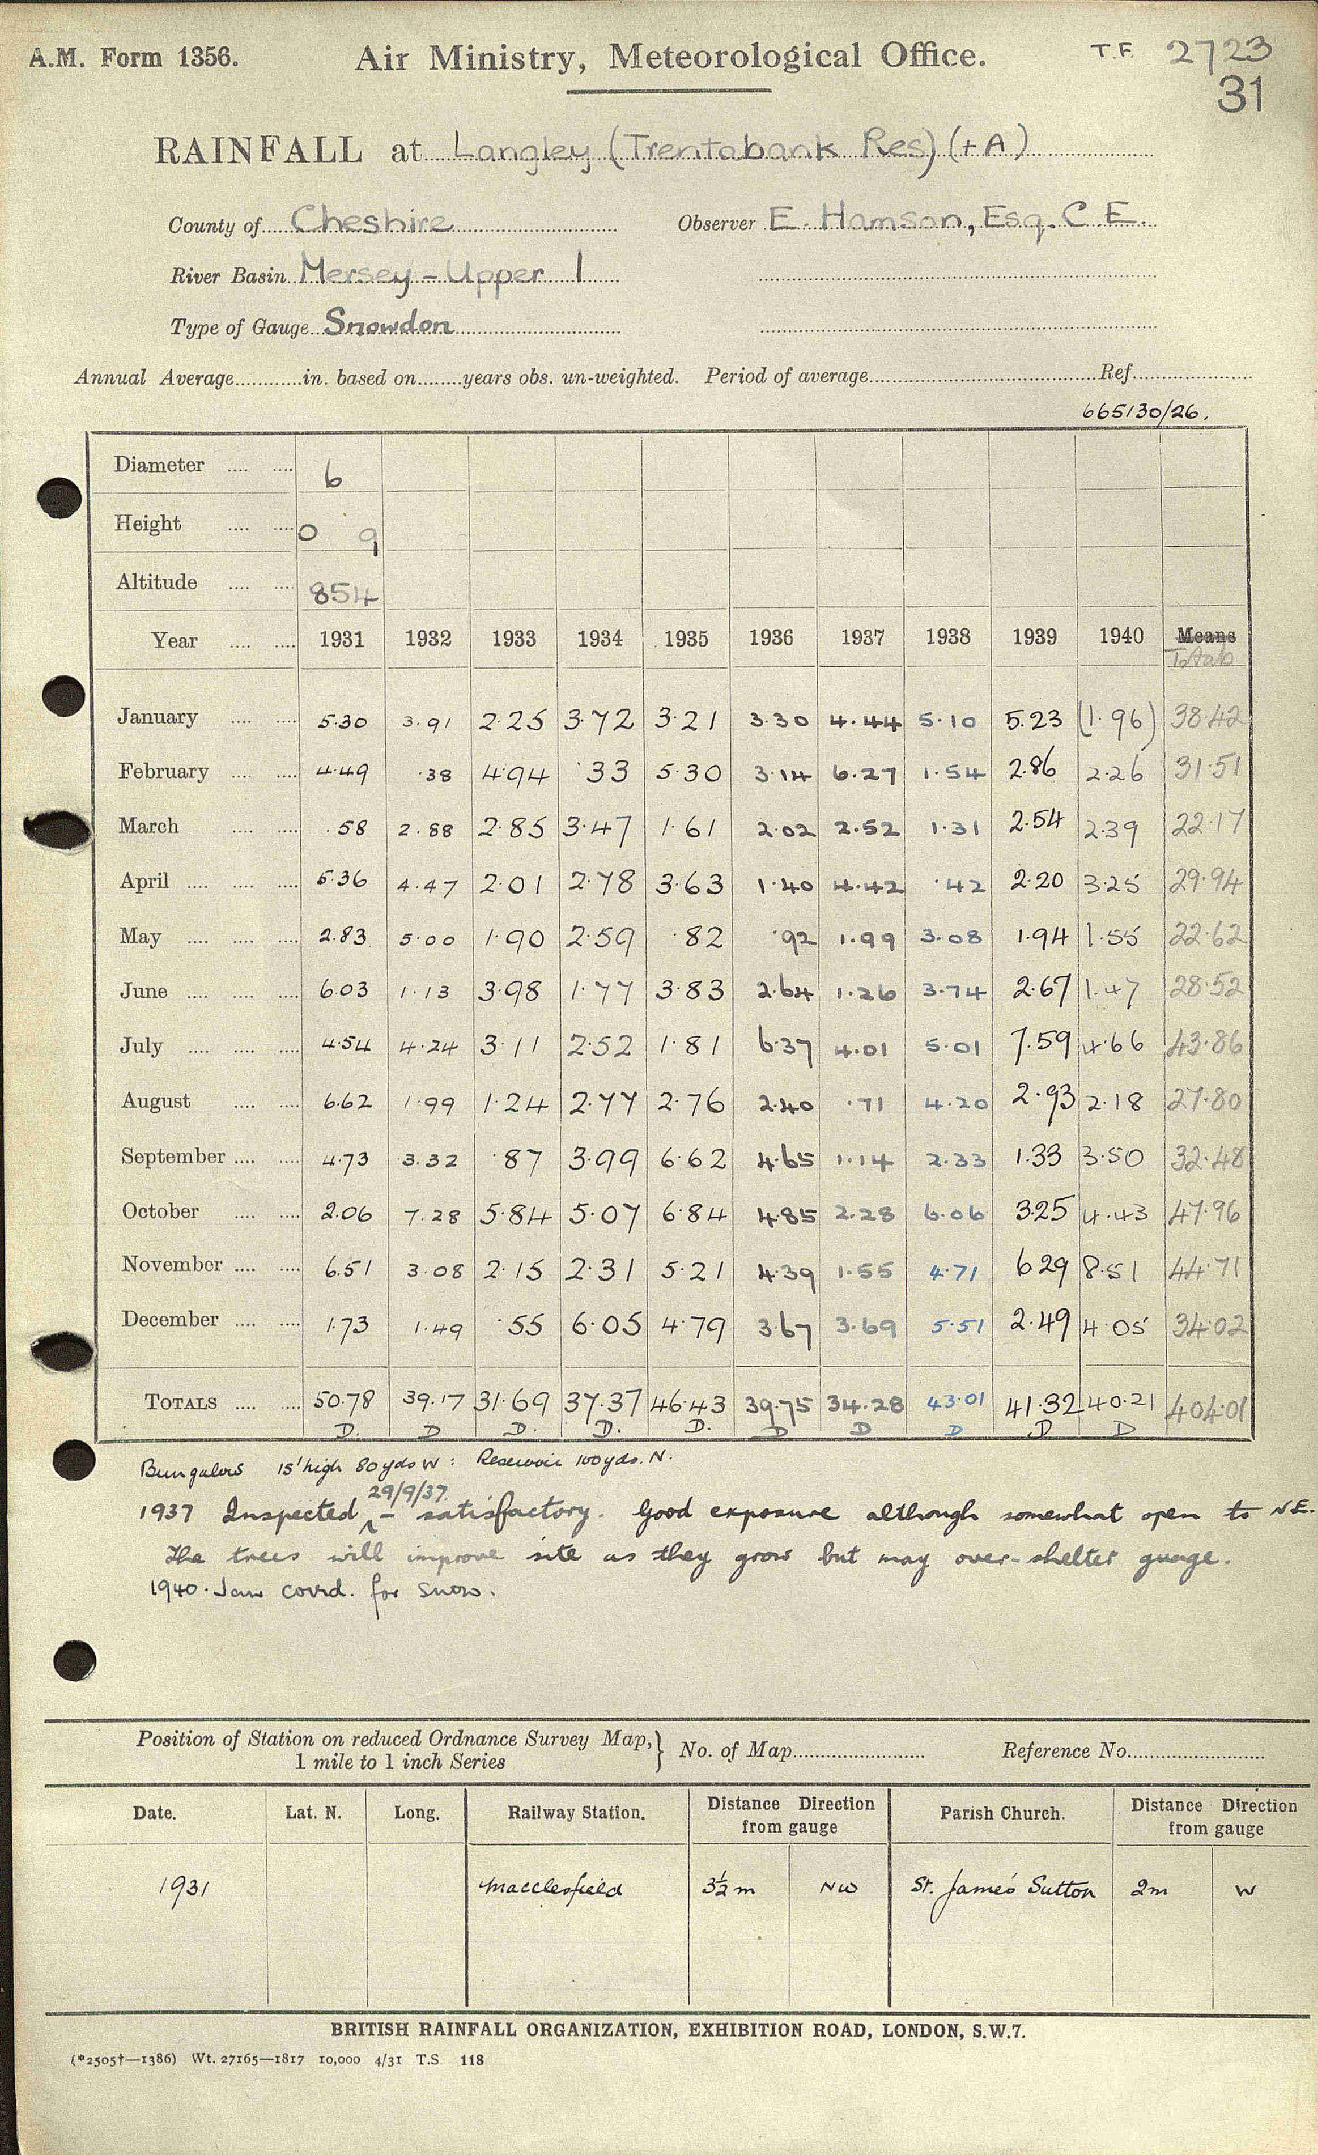 A.M. Form 1356.
Air Ministry, Meteorological Office.
T.F. 2723
31
RAINFALL at Langley (Trentabank Res) (+A)
County of Cheshire Observer E. Hamson, Esq. C.E.
River Basin Mersey - Upper 1
Type of Gauge Snowdon
Annual Average............in. based on........years obs. un-weighted. Period of average............Ref............
665130/26.
Diameter .... .... 6
Height .... .... 0 9
Altitude .... .... 854
Year .... .... 1931 1932 1933 1934 1935 1936 1937 1938 1939 1940 Means
Totals
January .... .... 5.30 3.91 2.25 3.72 3.21 3.30 4.44 5.10 5.23 (1.96) 38.42
February .... .... 4.49 .38 4.94 .33 5.30 3.14 6.27 1.54 2.86 2.26 31.51
March .... .... .58 2.88 2.85 3.47 1.61 2.02 2.52 1.31 2.54 2.39 22.17
April .... .... .... 5.36 4.47 2.01 2.78 3.63 1.40 4.42 .42 2.20 3.25 29.94
May .... .... .... 2.83 5.00 1.90 2.59 .82 .92 1.99 3.08 1.94 1.55 22.62
June .... .... .... 6.03 1.13 3.98 1.77 3.83 2.64 1.26 3.74 2.67 1.47 28.52
July .... .... .... 4.54 4.24 3.11 2.52 1.81 6.37 4.01 5.01 7.59 4.66 43.86
August .... .... 6.62 1.99 1.24 2.77 2.76 2.40 .71 4.20 2.93 2.18 27.80
September .... .... 4.73 3.32 .87 3.99 6.62 4.65 1.14 2.33 1.33 3.50 32.48
October .... .... 2.06 7.28 5.84 5.07 6.84 4.85 2.28 6.06 3.25 4.43 47.96
November .... .... 6.51 3.08 2.15 2.31 5.21 4.39 1.55 4.71 6.29 8.51 44.71
December .... .... 1.73 1.49 .55 6.05 4.79 3.67 3.69 5.51 2.49 4.05 34.02
TOTALS .... .... 50.78 39.17 31.69 37.37 46.43 39.75 34.28 43.01 41.32 40.21 404.01
D. D D. D. D. D D D D D
Bungalow 15' high 80yds W : Reservoir 100yds. N.
29/9/37
1937 Inspected - satisfactory. Good exposure although somewhat open to NE.
The trees will improve site as they grow but may over-shelter guage.
1940. Jan covrd. for snow.
Position of Station on reduced Ordnance Survey Map, } No. of Map............ Reference No............
1 mile to 1 inch Series
Date. Lat. N. Long. Railway Station. Distance Direction from gauge Parish Church. Distance Direction from gauge
1931 Macclesfield 3½m NW St. James' Sutton 2m W
BRITISH RAINFALL ORGANIZATION, EXHIBITION ROAD, LONDON, S.W.7.
(*2505†—1386) Wt. 27165—1817 10,000 4/31 T.S. 118